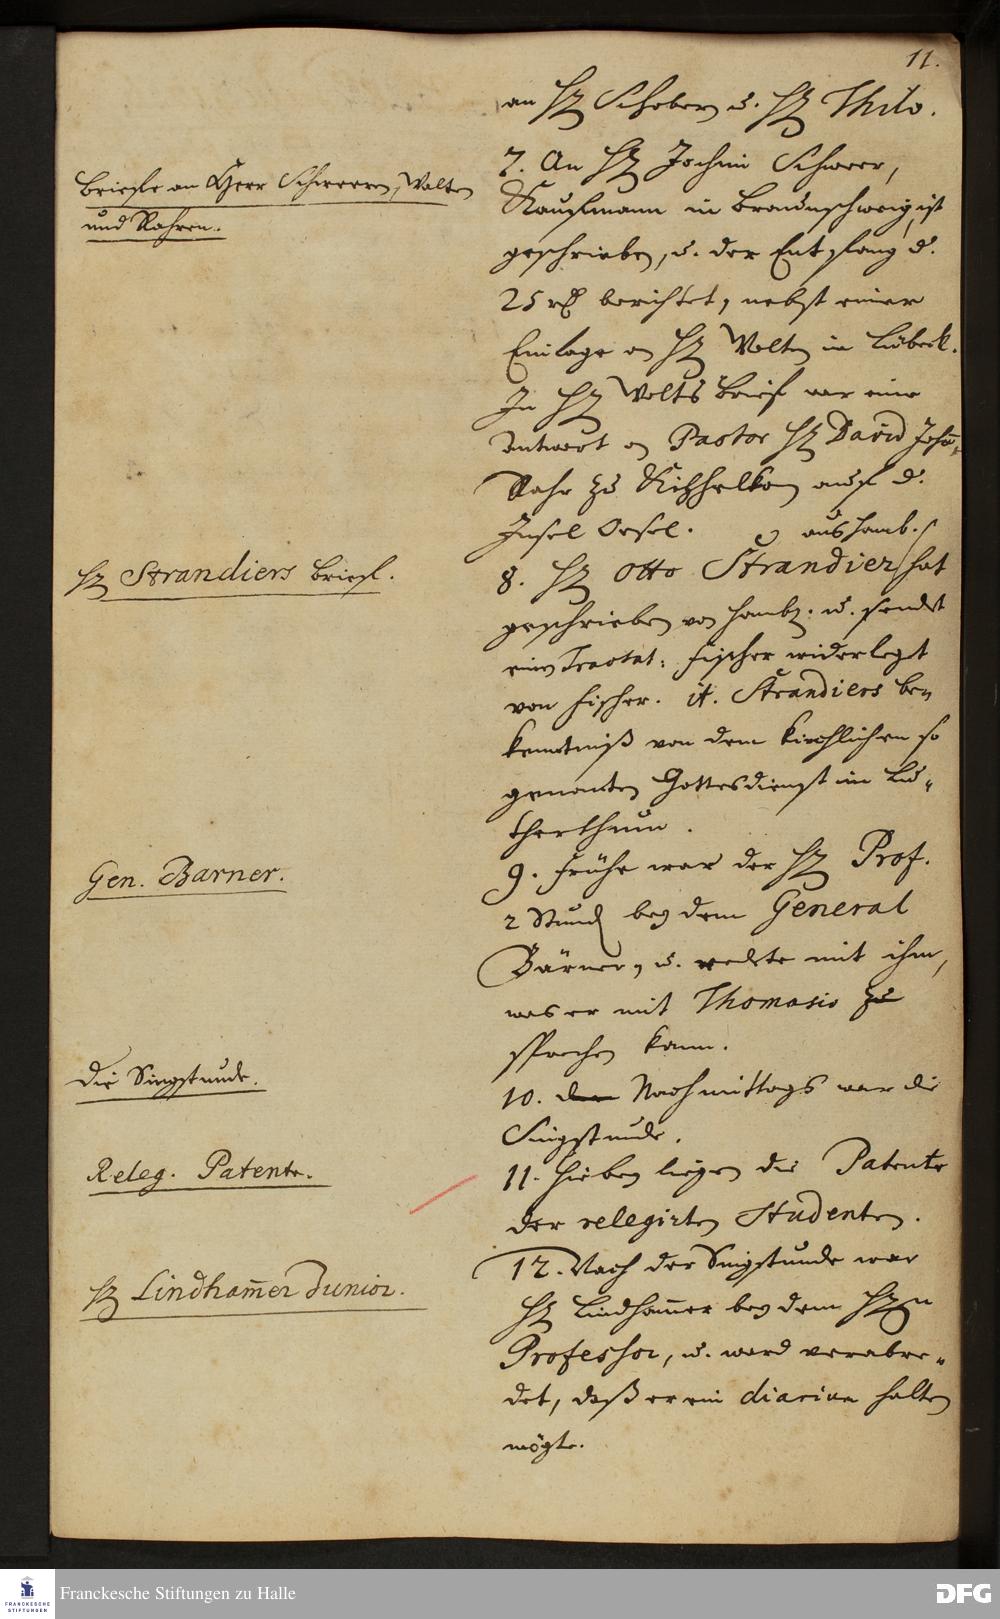 11.
an H. Schobern u. H. Thilo.
Brieffe an Herr Schweern, Wolten
und Rahren.
7. An H. Jochim Schweer,
Kauffmann in Braunschweig, ist
geschrieben, u. der Entpfang d.
25 rth berichtet, nebst einer
Einlage an H. Wolten in Lübeck.
In H. Wolts Brief war eine
Antwort an Pastor H. David Joh.
Rahr zu Kihhelkon auff d.
Insel Oesel.
aus Hamb.
H. Strandiers Brief.
8. H. Otto Strandier hat
geschrieben von Hamb. u. sendet
einen Tractat: Fischer widerlegt
von Fischer. it. Strandiers Be-
kenntniß von dem kirchlichen so
genanten Gottesdienst im Lu-
therthum.
Gen. Barner.
9. Frühe war der H. Prof.
2 Stund bey dem General
Bärner, u. redete mit ihm,
was er mit Thomasio zu
sprechen kam.
Die Singstunde.
10. Nachmittags war die
Singstunde.
Releg. Patente.
11. Hiebey liegen die Patente
der relegirten Studenten.
H. Lindham̄er Junior.
12. Nach der Singstunde war
H. Lindham̄er bey dem H.n
Professor, u. ward verabre-
det, daß er ein diarium halten
mögte.
FRANCKESCHE
STIFTUNGEN
Franckesche Stiftungen zu Halle
DFG